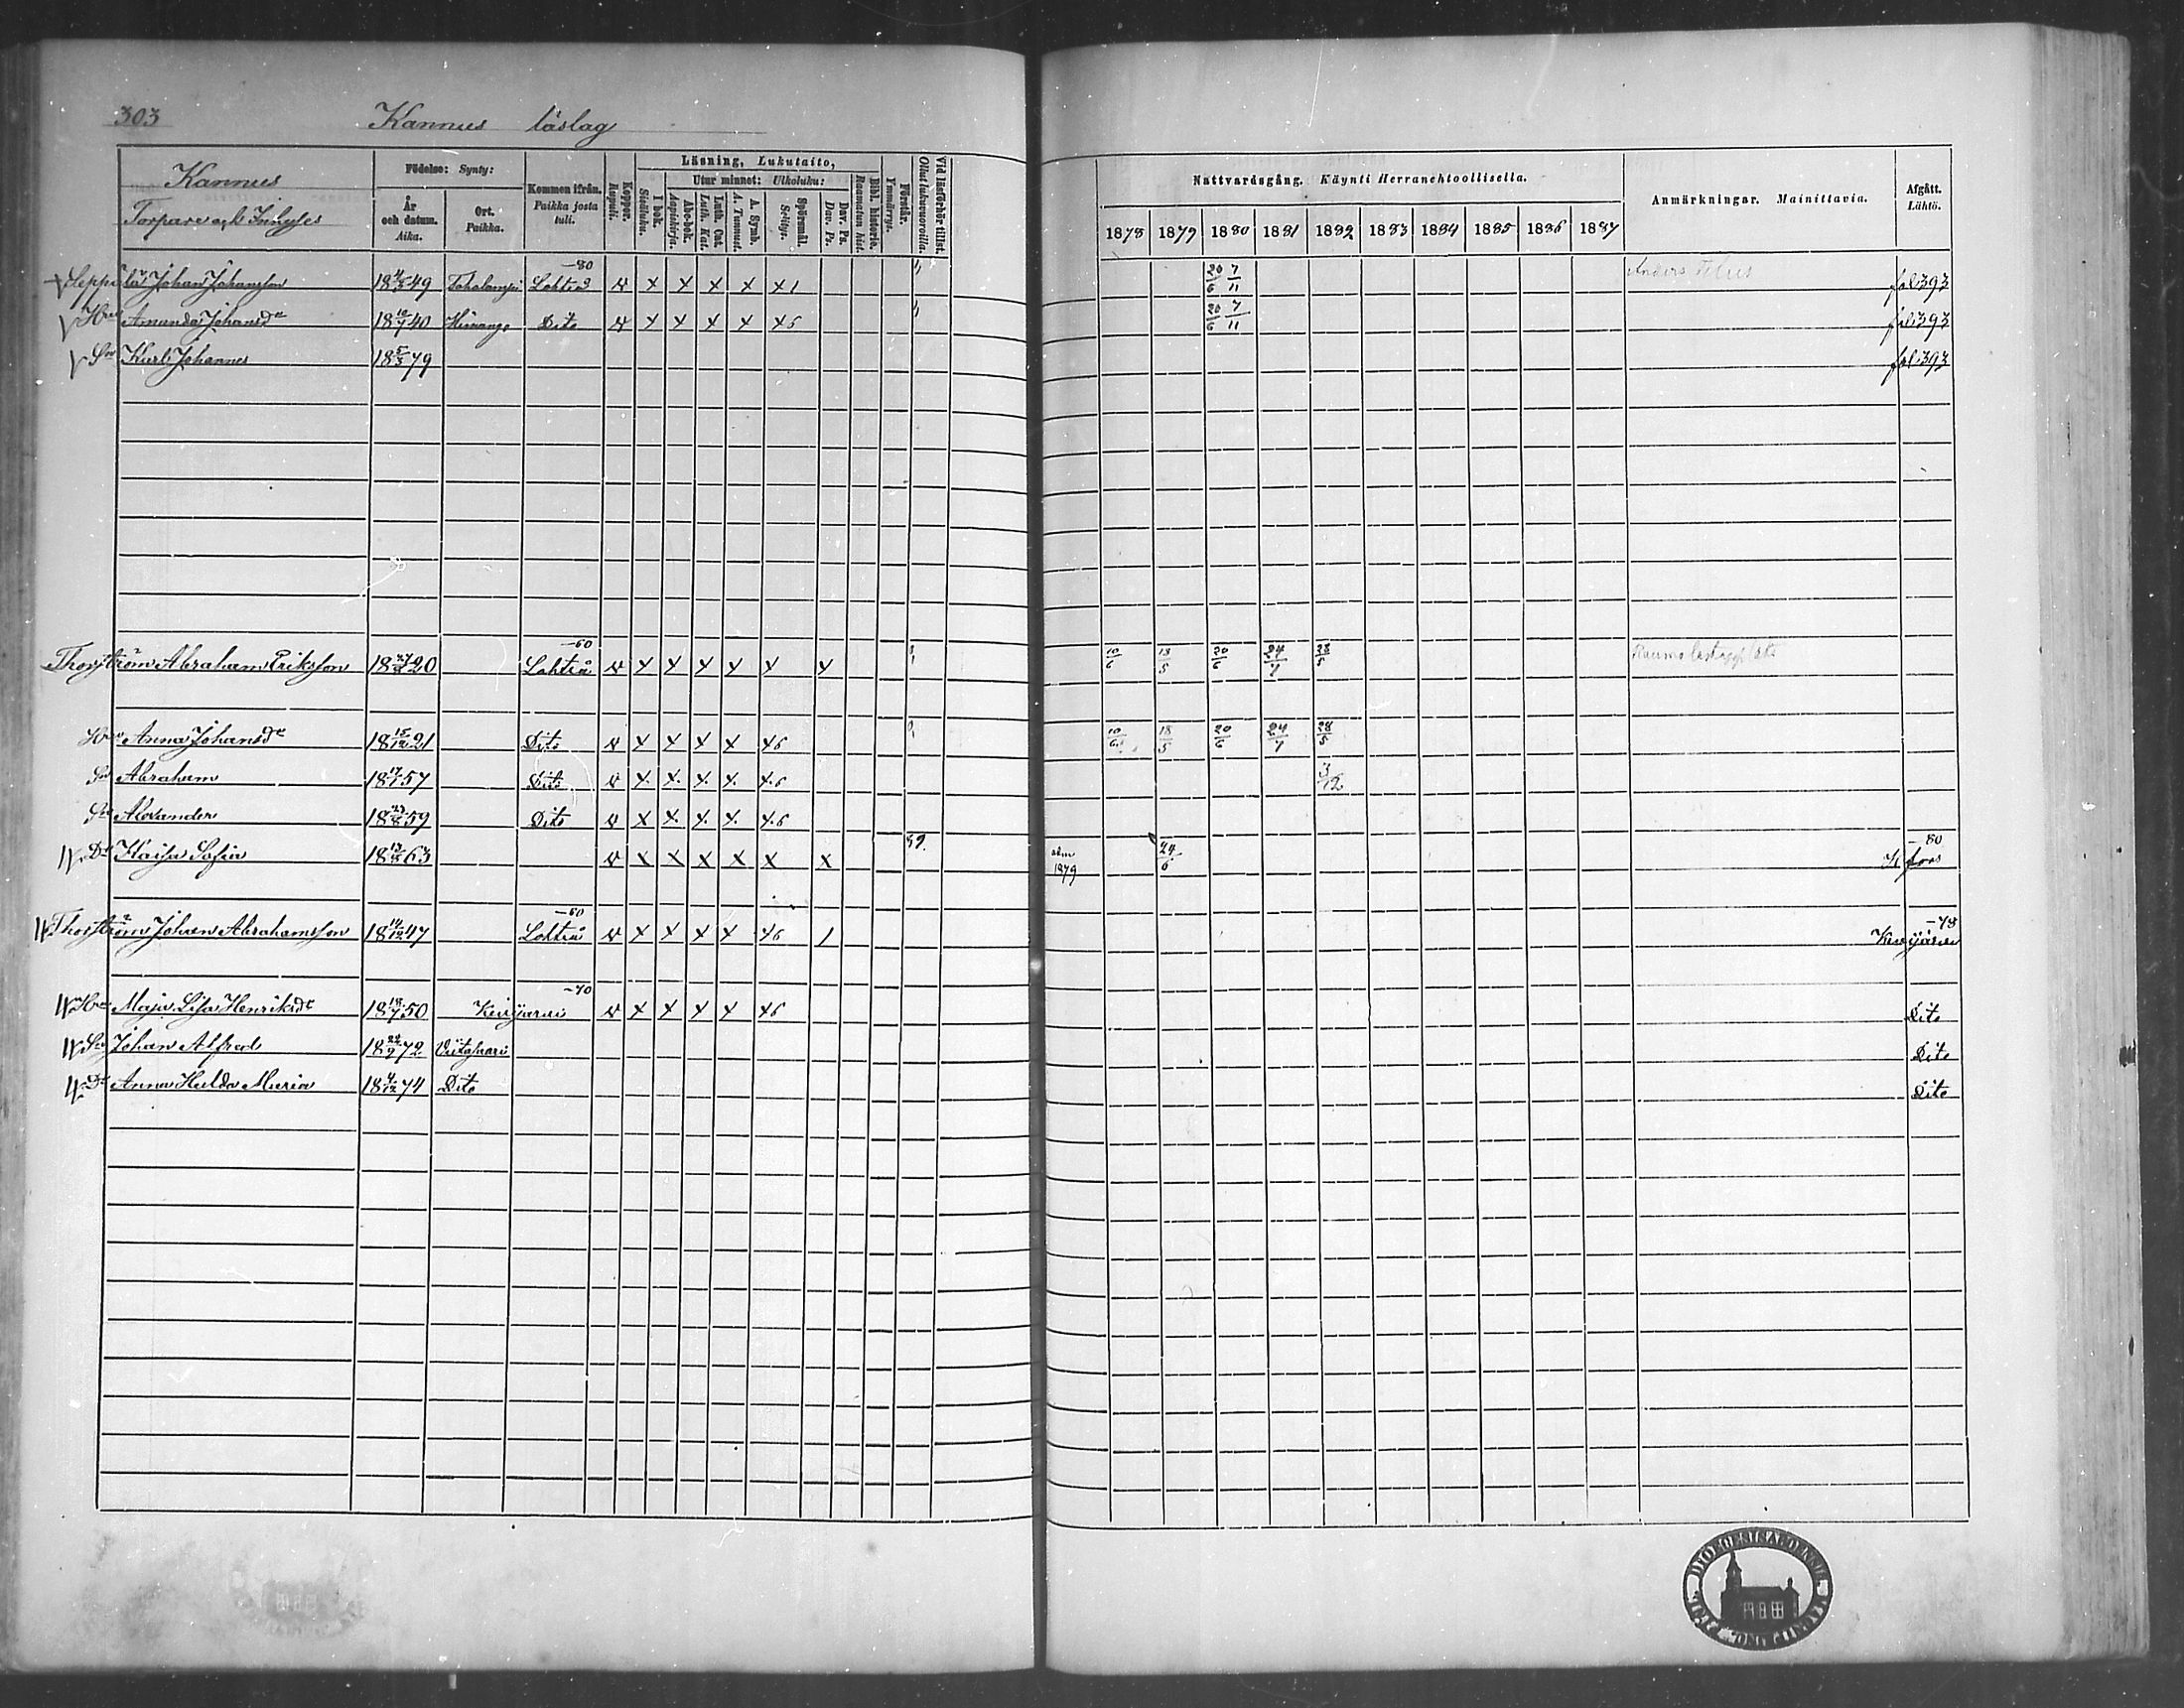 303 Kannus läslag
Kannus
Torpare och Inhyses
Födelse: Synty:
År och datum. Aika.
Ort. Paikka.
Kommen ifrån. Paikka josta tuli.
Koppor. Rupuli.
Läsning, Lukutaito,
I bok. Sisäluku.
Utur minnet: Ulkoluku:
Abc-bok. Aapiskirja.
Luth. Cat. Luth. Kat.
A. Symb. A. Tunnust.
Spörsmål. Selitys.
Dav. Ps. Dav. Ps.
Bibl. historie. Raamatun hist.
Förstår. Ymmärrys.
Vid läsförhör tillst. Ollut lukuvuoroilla.
Nattvardsgång. Käynti Herranehtoollisella.
1878 1879 1880 1881 1882 1883 1884 1885 1886 1887
Anmärkningar. Mainittavia.
Afgått. Lähtö.
Seppälä Johan Johansson 18 4/5 49 Toholampi -80 Lohteå x x x x x1 20/6 7/11 Anders fol 393
Hru Amanda Johansdr 1840 Himango Dito x x x x x5 20/6 7/11 fol 393
Sn Karl Johannes 18 5/3 79 fol 393
Thorström Abraham Eriksson 1820 -60 Lohteå x x x x x x 10/6 18/5 20/6 24/7 28/5
Hru Anna Johansdr 18 15/12 21 Dito x x x x x6 10/6 18/5 20/6 24/7 28/5
Sn Abraham 18 17/1 57 Dito x x x x x6 3/12
Sn Alexander 1859 Dito x x x x x6
Dr Kaisa Sofia 1863 x x x x x x 79. adm 1879 24/6 -80 H:fors
Thorström Johan Abrahamsson 18 14/12 47 -60 Lohteå x x x x x6 1 -78 Keuijärvi
Hru Maja Lisa Henriksdr 18 18/7 50 -70 Keuijärvi x x x x x6 Dito
Sn Johan Alfred 18 22/9 72 Viitasaari Dito
Dr Anna Hulda Maria 18 4/12 74 Dito Dito